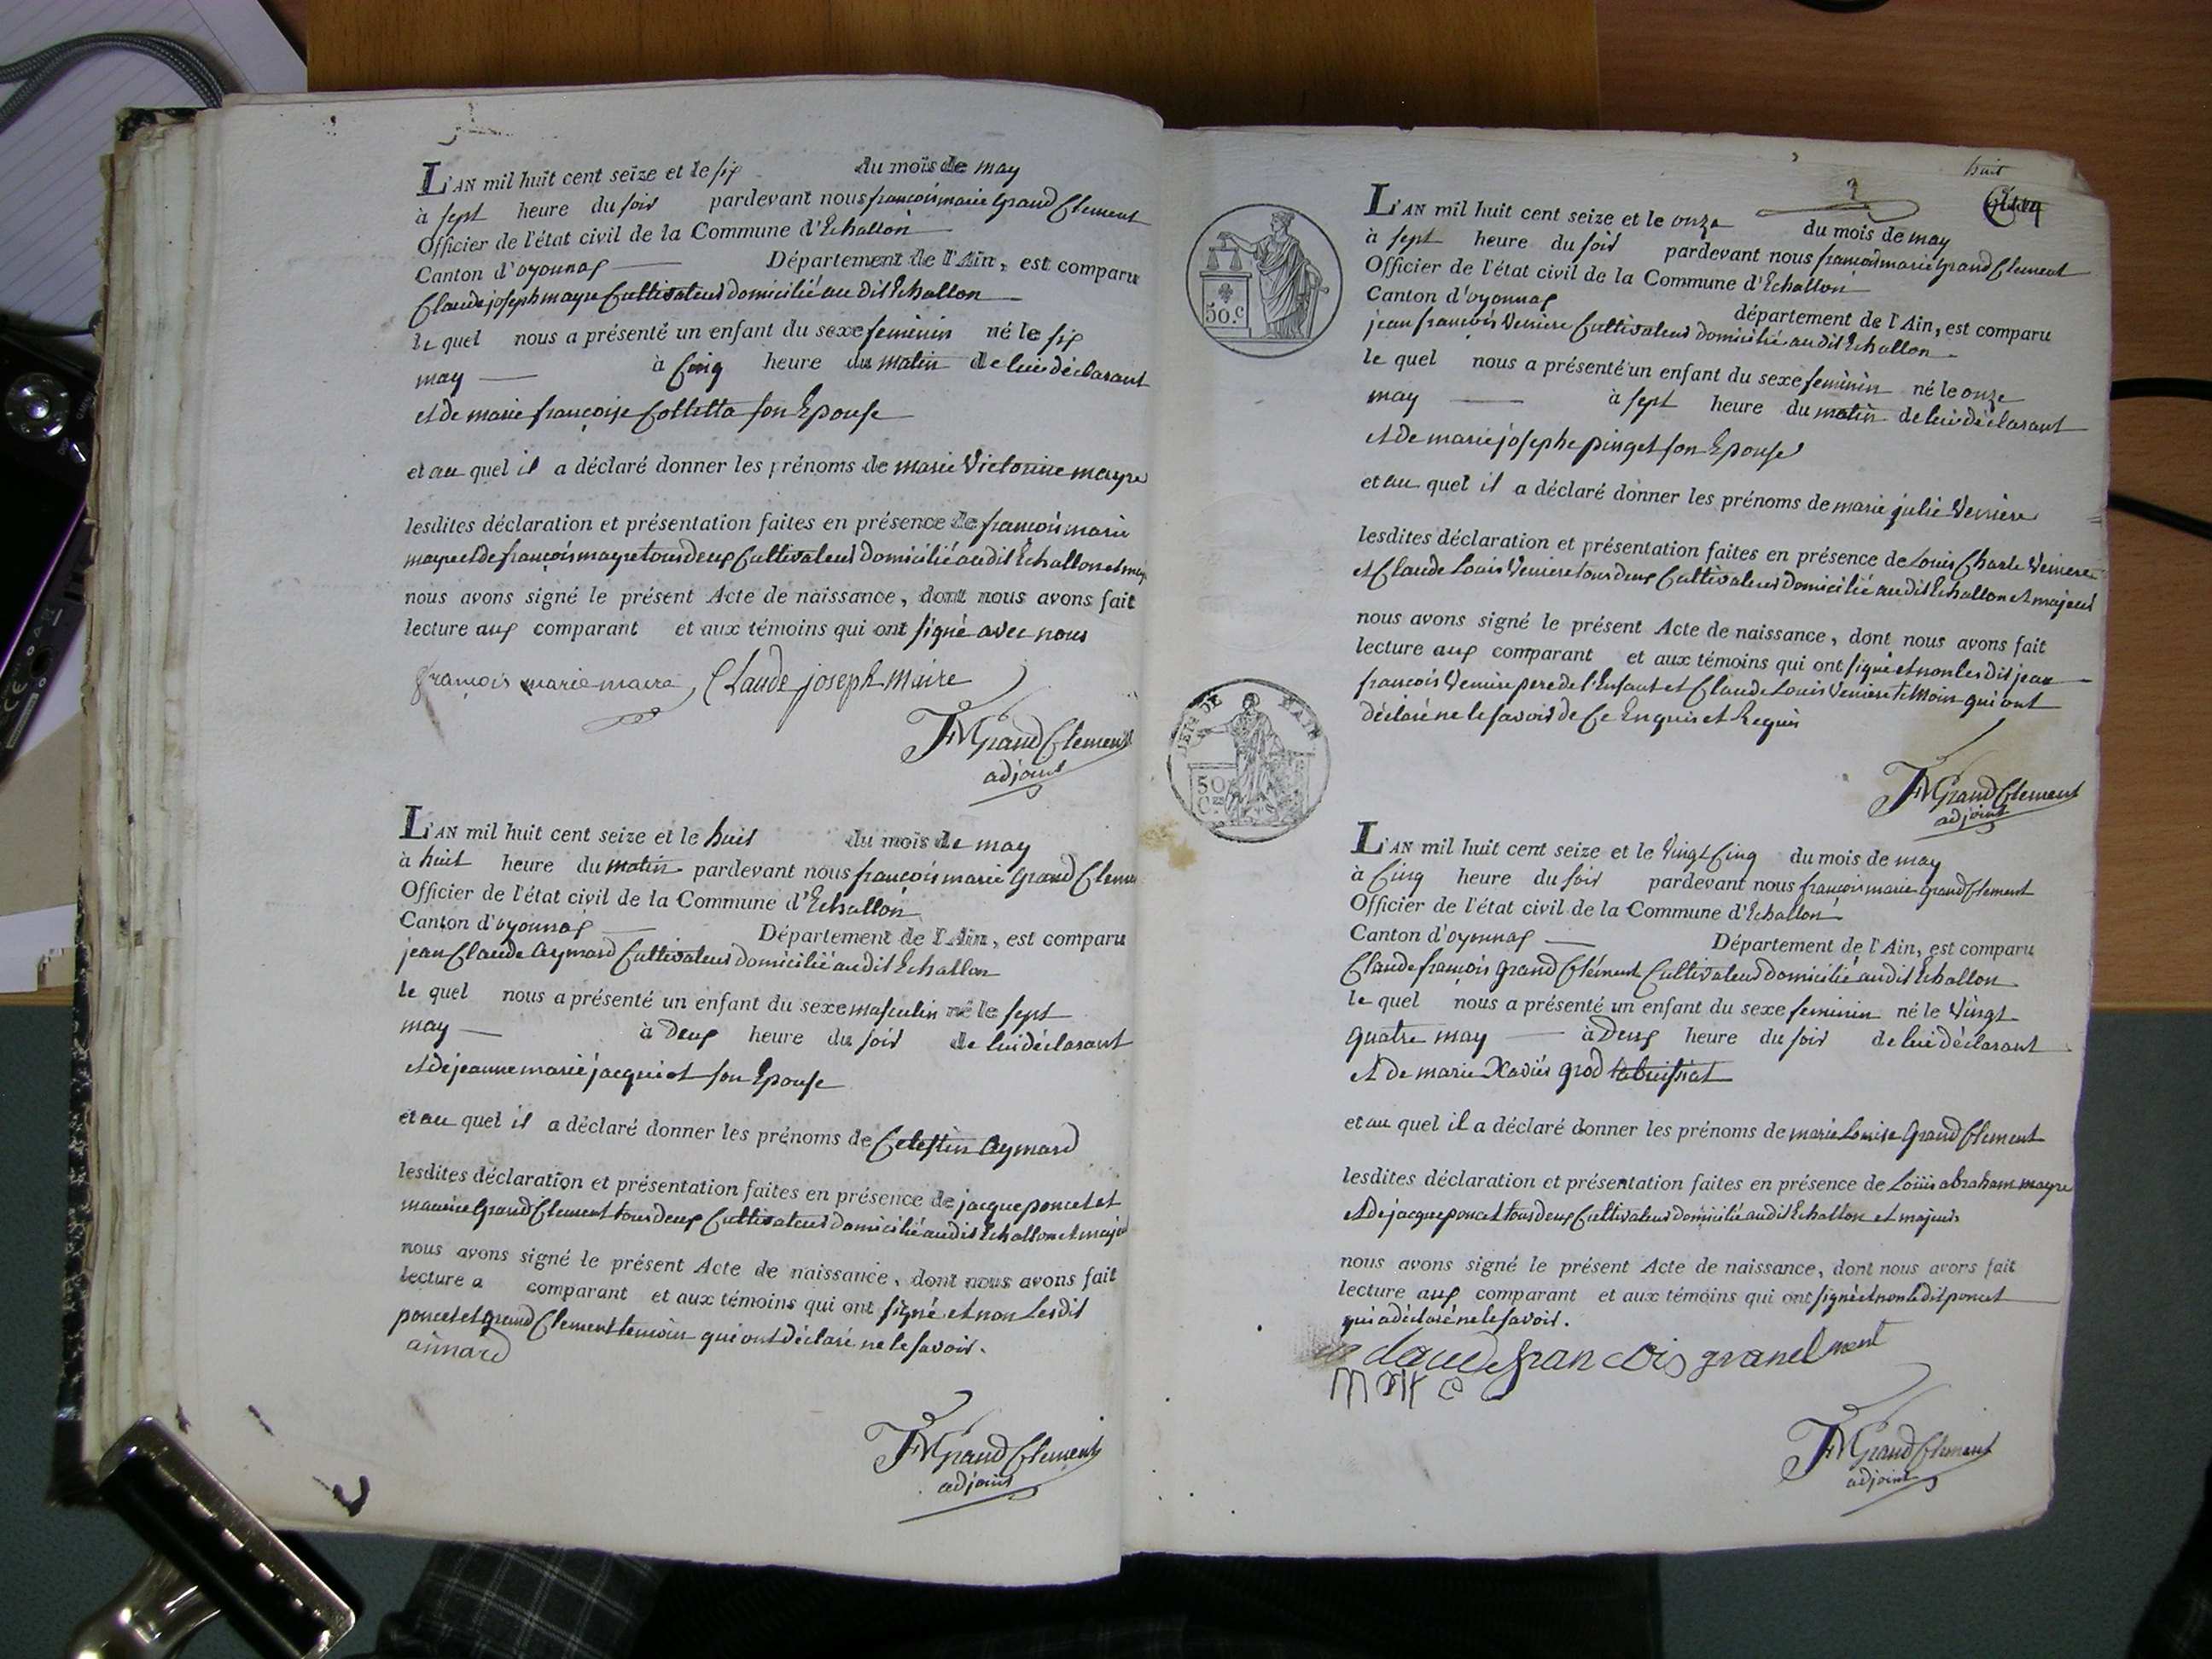 L'AN mil huit cent seize et le six du mois de may
à sept heure du soir pardevant nous françois marie Grand Clement
Officier de l'état civil de la Commune d'Echallon
Canton d'oyonnax Département de l'Ain, est comparu
Claude joseph mayre Cultivateur domicilié au dit Echallon
le quel nous a présenté un enfant du sexe feminin né le six
may à Cinq heure du matin de lui déclarant
et de marie françoise Colletta son Epouse
et au quel il a déclaré donner les prénoms de marie Victorine mayre
lesdites déclaration et présentation faites en présence de françois marie
mayre et de françois mayre tous deux Cultivateur domicilié au dit Echallon et maj
nous avons signé le présent Acte de naissance, dont nous avons fait
lecture aux comparant et aux témoins qui ont signé avec nous
françois marie maire Claude joseph Maire
FM Grand Clement
adjoint
L'AN mil huit cent seize et le huit du mois de may
à huit heure du matin pardevant nous françois marie Grand Cleme
Officier de l'état civil de la Commune d'Echallon
Canton d'oyonnax Département de l'Ain, est comparu
jean Claude Aymard Cultivateur domicilié au dit Echallon
le quel nous a présenté un enfant du sexe masculin né le sept
may à Deux heure du soir de lui déclarant
et de jeanne marie jacquiot son Epouse
et au quel il a déclaré donner les prénoms de Celestin Aymard
lesdites déclaration et présentation faites en présence de jacque poncet et
maurice Grand Clement tous deux Cultivateur domicilié au dit Echallon et majeu
nous avons signé le présent Acte de naissance, dont nous avons fait
lecture a comparant et aux témoins qui ont signé et non Lesdit
poncet et grand Clement temoin qui ont déclaré ne le savoir.
aimard
FM Grand Clement
adjoint
huit
L'AN mil huit cent seize et le onze du mois de may
à sept heure du soir pardevant nous françois marie Grand Clement
Officier de l'état civil de la Commune d'Echallon
Canton d'oyonnax département de l'Ain, est comparu
jean françois Verniere Cultivateur domicilié au dit Echallon
le quel nous a présenté un enfant du sexe feminin né le onze
may à sept heure du matin de lui déclarant
et de marie josephe pinget son Epouse
et au quel il a déclaré donner les prénoms de marie julie Verniere
lesdites déclaration et présentation faites en présence de Louis Charle Verniere
et Claude Louis Verniere tous deux Cultivateur domicilié au dit Echallon et majeur
nous avons signé le présent Acte de naissance, dont nous avons fait
lecture aux comparant et aux témoins qui ont signé et non les dit jean
françois Verniere pere de l'Enfant et Claude Louis Verniere temoin qui ont
déclaré ne le savoir de Ce Enquis et Requis
50.c
50
FM Grand Clement
adjoint
L'AN mil huit cent seize et le Vingt Cinq du mois de may
à Cinq heure du soir pardevant nous françois marie Grand Clement
Officier de l'état civil de la Commune d'Echallon
Canton d'oyonnax Département de l'Ain, est comparu
Claude françois Grand Clément Cultivateur domicilié au dit Echallon
le quel nous a présenté un enfant du sexe feminin né le Vingt
quatre may à Deux heure du soir de lui déclarant
et de marie Xavier grod
et au quel il a déclaré donner les prénoms de marie Louise Grand Clement
lesdites déclaration et présentation faites en présence de Louis abraham mayre
et de jacque poncet tous deux Cultivateur domicilié au dit Echallon et majeur
nous avons signé le présent Acte de naissance, dont nous avons fait
lecture aux comparant et aux témoins qui ont signé et non ledit poncet
qui a déclaré ne le savoir.
claude francois granclment
FM Grand Clement
adjoint